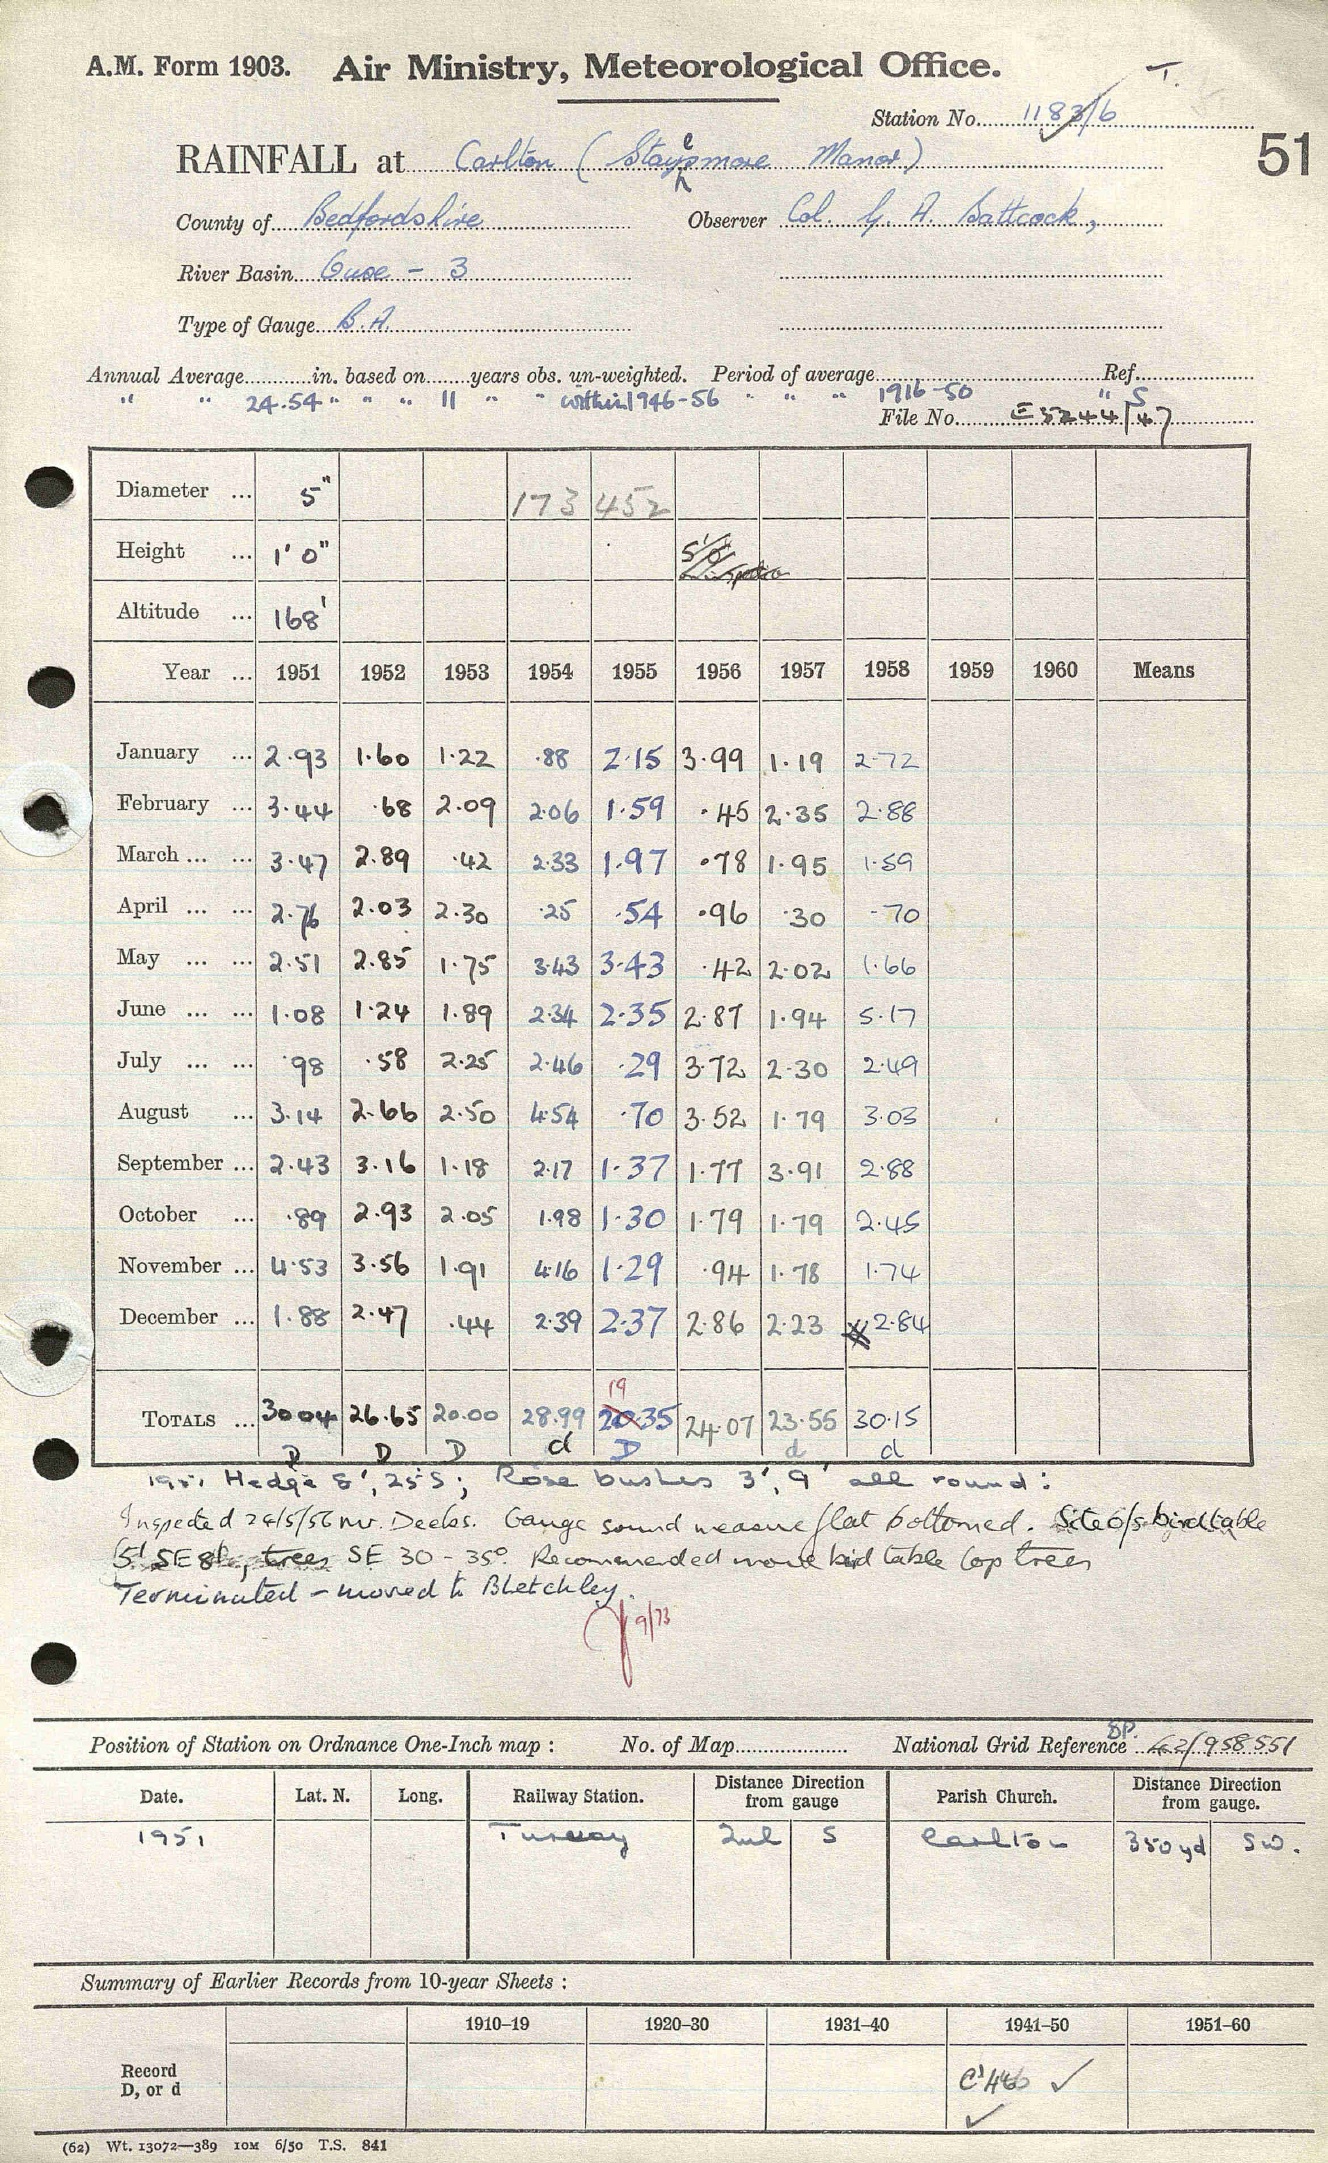 A.M. Form 1903. Air Ministry, Meteorological Office. T.
Station No. 1183/6
RAINFALL at Carlton ( Manor) 51
County of Bedfordshire Observer Col. G. A. Battcock,
River Basin Ouse - 3
Type of Gauge B.A.
Annual Average in. based on years obs. un-weighted. Period of average Ref.
" " 24.54 " " " 11 " " within 1946-56 " " " 1916-50 " S
File No. E5244/47
Diameter ... 5" 173 452
Height ... 1' 0" 5'0"
Altitude ... 168'
Year ... 1951 1952 1953 1954 1955 1956 1957 1958 1959 1960 Means
January ... 2.93 1.60 1.22 .88 2.15 3.99 1.19 2.72
February ... 3.44 .68 2.09 2.06 1.59 .45 2.35 2.88
March ... ... 3.47 2.89 .42 2.33 1.97 .78 1.95 1.59
April ... ... 2.76 2.03 2.30 .25 .54 .96 .30 .70
May ... ... 2.51 2.85 1.75 3.43 3.43 .42 2.02 1.66
June ... ... 1.08 1.24 1.89 2.34 2.35 2.87 1.94 5.17
July ... ... .98 .58 2.25 2.46 .29 3.72 2.30 2.49
August ... 3.14 2.66 2.50 4.54 .70 3.52 1.79 3.03
September ... 2.43 3.16 1.18 2.17 1.37 1.77 3.91 2.88
October ... .89 2.93 2.05 1.98 1.30 1.79 1.79 2.45
November ... 4.53 3.56 1.91 4.16 1.29 .94 1.78 1.74
December ... 1.88 2.47 .44 2.39 2.37 2.86 2.23 2.84
19
TOTALS ... 30.04 26.65 20.00 28.99 20.35 24.07 23.55 30.15
D D D d D d d
1951 Hedge 8', 25' S; Rose bushes 3', 9' all round:
Inspected 24/5/56 Mr. Deeks. Gauge sound measure flat bottomed. Site o/s bird table
5' SE 8ft, trees SE 30 - 35°. Recommended move bird table lop trees
Terminated - moved to Bletchley.
9/73
Position of Station on Ordnance One-Inch map : No. of Map National Grid Reference SP 42/958551
Date. Lat. N. Long. Railway Station. Distance from gauge Direction Parish Church. Distance from gauge. Direction
1951 Turvey 2ml S Carlton 350yd SW.
Summary of Earlier Records from 10-year Sheets :
1910–19 1920–30 1931–40 1941–50 1951–60
Record
D, or d
(62) Wt. 13072—389 10M 6/50 T.S. 841